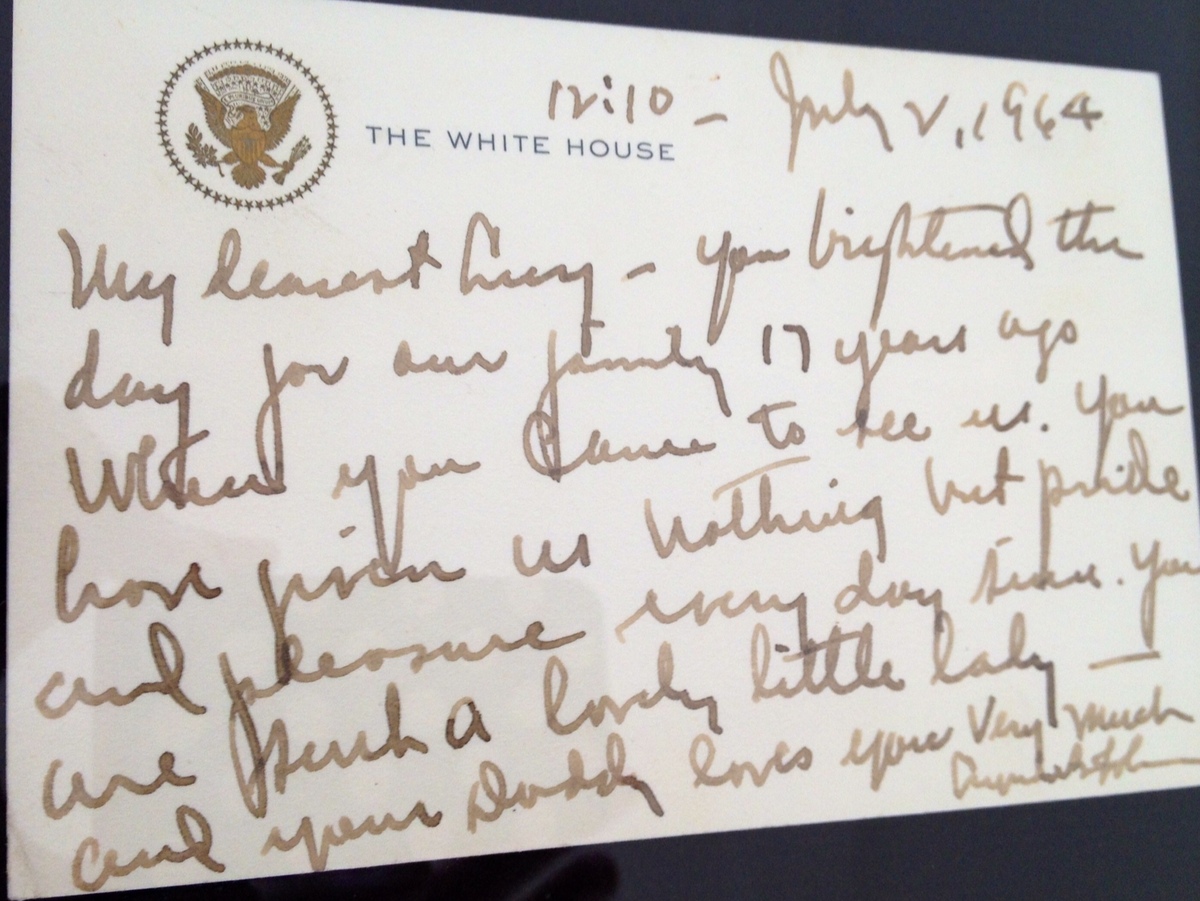 12:10 - July 2, 1964
THE WHITE HOUSE
My dearest Lucy - you brightened the
day for our family 17 years ago
When you came to see us. You
have given us nothing but pride
and pleasure every day since. You
are such a lovely little lady —
and your Daddy loves you Very much